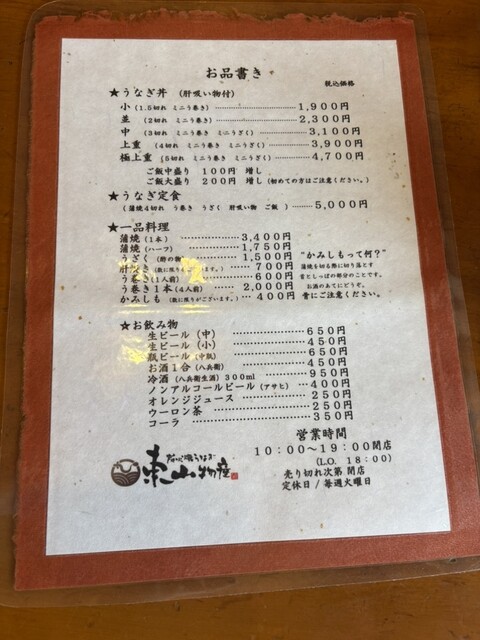 お品書き
税込価格
★うなぎ丼 (肝吸い物付)
小(1.5切れ ミニう巻き)………1,900円
並 (2切れ ミニう巻き)………2,300円
中 (3切れ ミニう巻き ミニうざく)………3,100円
上重 (4切れ ミニう巻き ミニうざく)………3,900円
極上重(5切れ ミニう巻き ミニうざく)………4,700円
ご飯中盛り 100円 増し
ご飯大盛り 200円 増し(初めての方はご注意ください。)
★うなぎ定食
(蒲焼4切れ う巻き うざく 肝吸い物 ご飯 )……5,000円
★一品料理
蒲焼(1本) ………3,400円
蒲焼(ハーフ) ………1,750円
うざく(酢の物)………1,500円
肝焼き(数に限りがございます。)………700円
う巻き(1人前)………600円
う巻き1本(4人前)………2,000円
かみしも(数に限りがございます。)……400円
"かみしもって何?"
蒲焼を切る際に切り落とす
首としっぽの部分のことです。
お酒のあてにどうぞ。
骨にご注意ください。
★お飲み物
生ビール(中)………650円
生ビール(小)………450円
瓶ビール(中瓶)………650円
お酒1合(八兵衛)………450円
冷酒(八兵衛生酒)300ml………950円
ノンアルコールビール(アサヒ)……400円
オレンジジュース………250円
ウーロン茶………250円
コーラ………350円
営業時間
10:00~19:00閉店
(L.O. 18:00)
売り切れ次第 閉店
定休日/毎週火曜日
東山物産